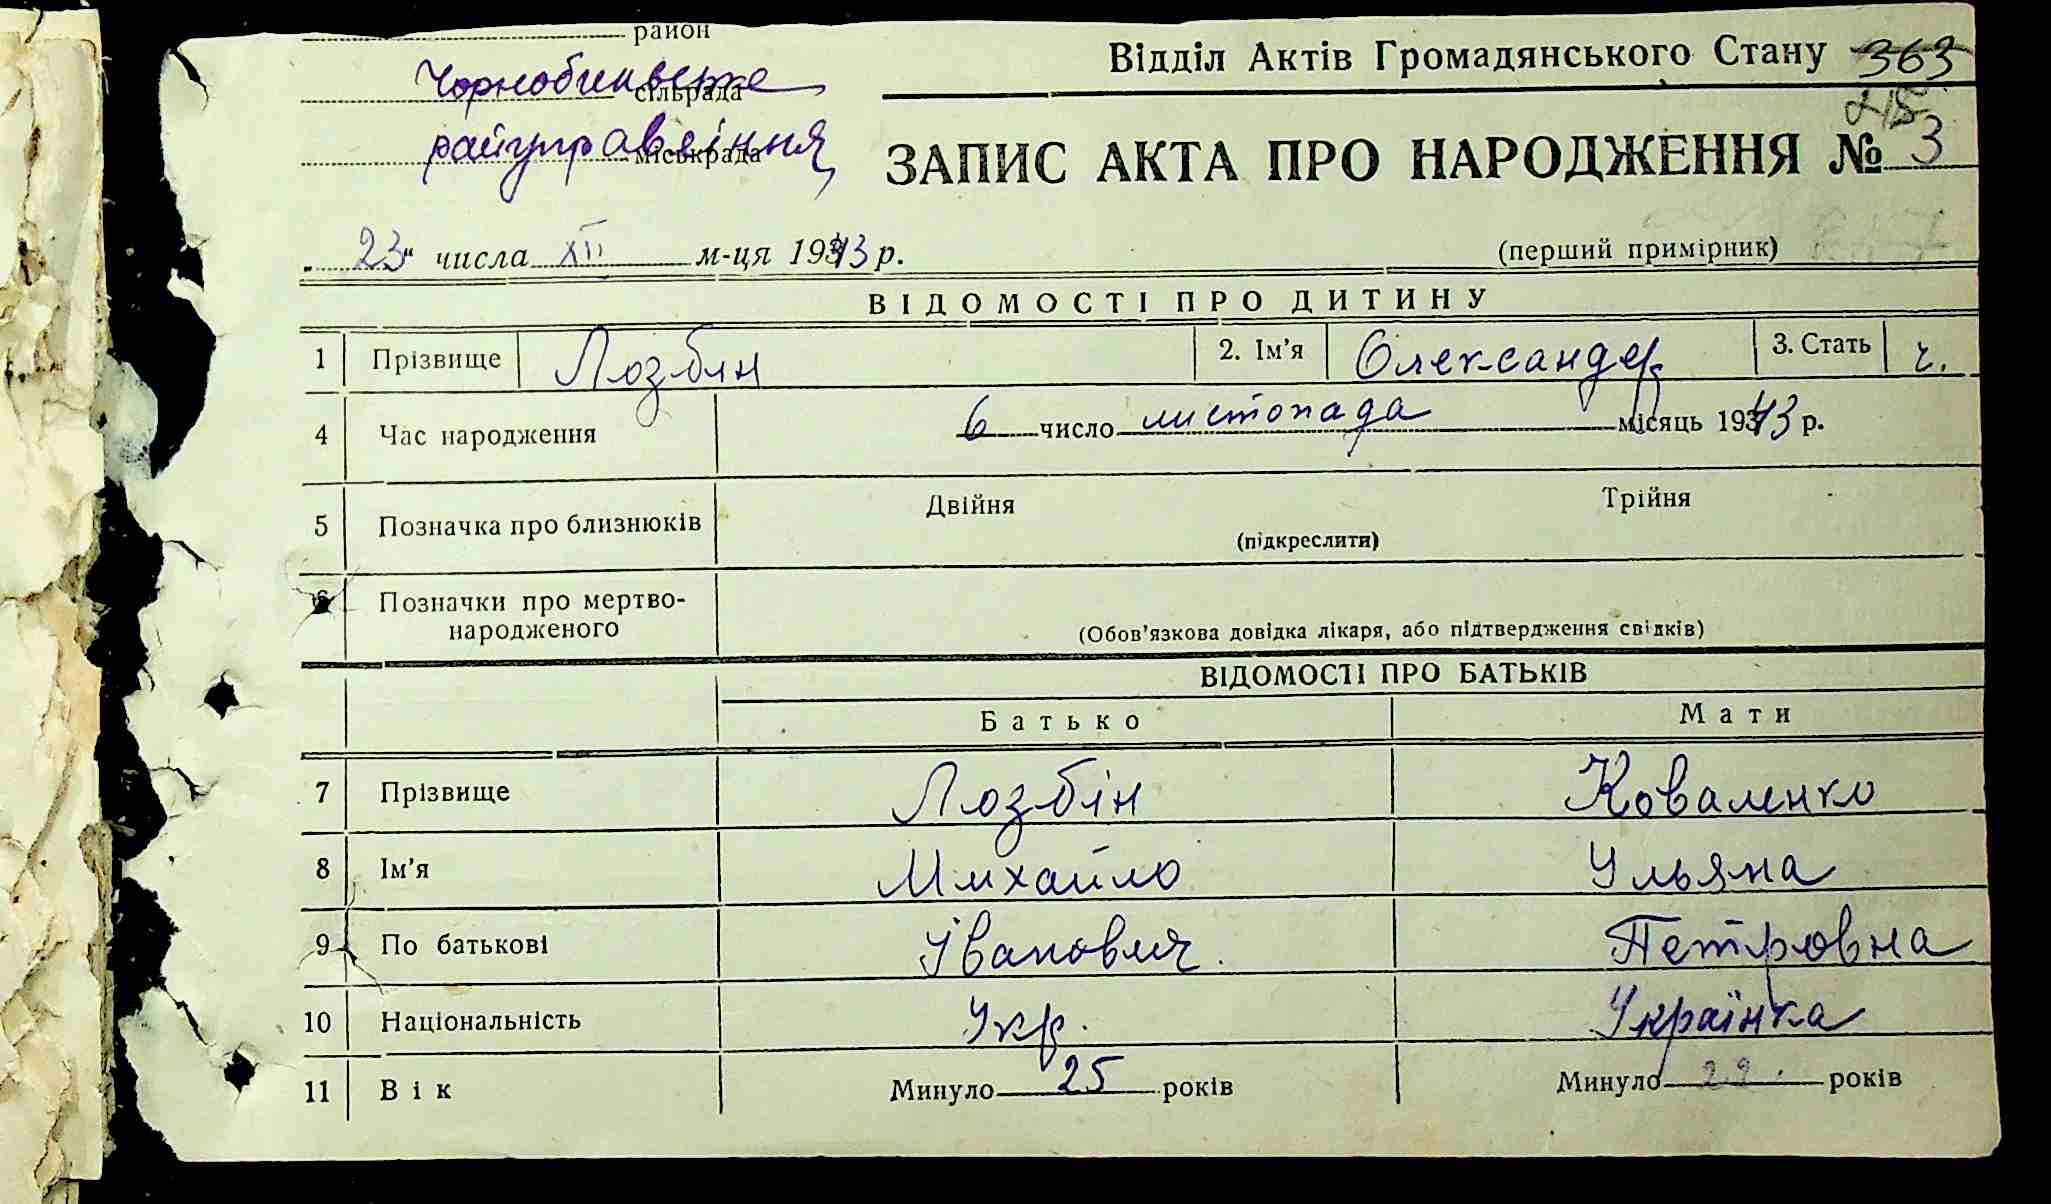 район
Чорнобиивське сільрада
райуправління міськрада
Відділ Актів Громадянського Стану 363
215
ЗАПИС АКТА ПРО НАРОДЖЕННЯ № 3
„ 23 “ числа XII м-ця 1943 р. (перший примірник)
ВІДОМОСТІ ПРО ДИТИНУ
1 Прізвище Лозбін 2. Ім’я Олександер 3. Стать ч.
4 Час народження 6 число листопада місяць 1943 р.
5 Позначка про близнюків Двійня Трійня
(підкреслити)
6 Позначки про мертво-
народженого (Обов’язкова довідка лікаря, або підтвердження свідків)
ВІДОМОСТІ ПРО БАТЬКІВ
Батько Мати
7 Прізвище Лозбін Коваленко
8 Ім’я Михайло Ульяна
9 По батькові Іванович. Петровна
10 Національність Укр. Українка
11 Вік Минуло 25 років Минуло 29. років